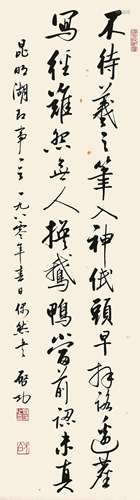 不待羲之筆入神低頭早拜路邊塵
寫經難怨無人換鵝鴨當前認未真
昆明湖即事之一 一九八〇年春日偶然書 啟功